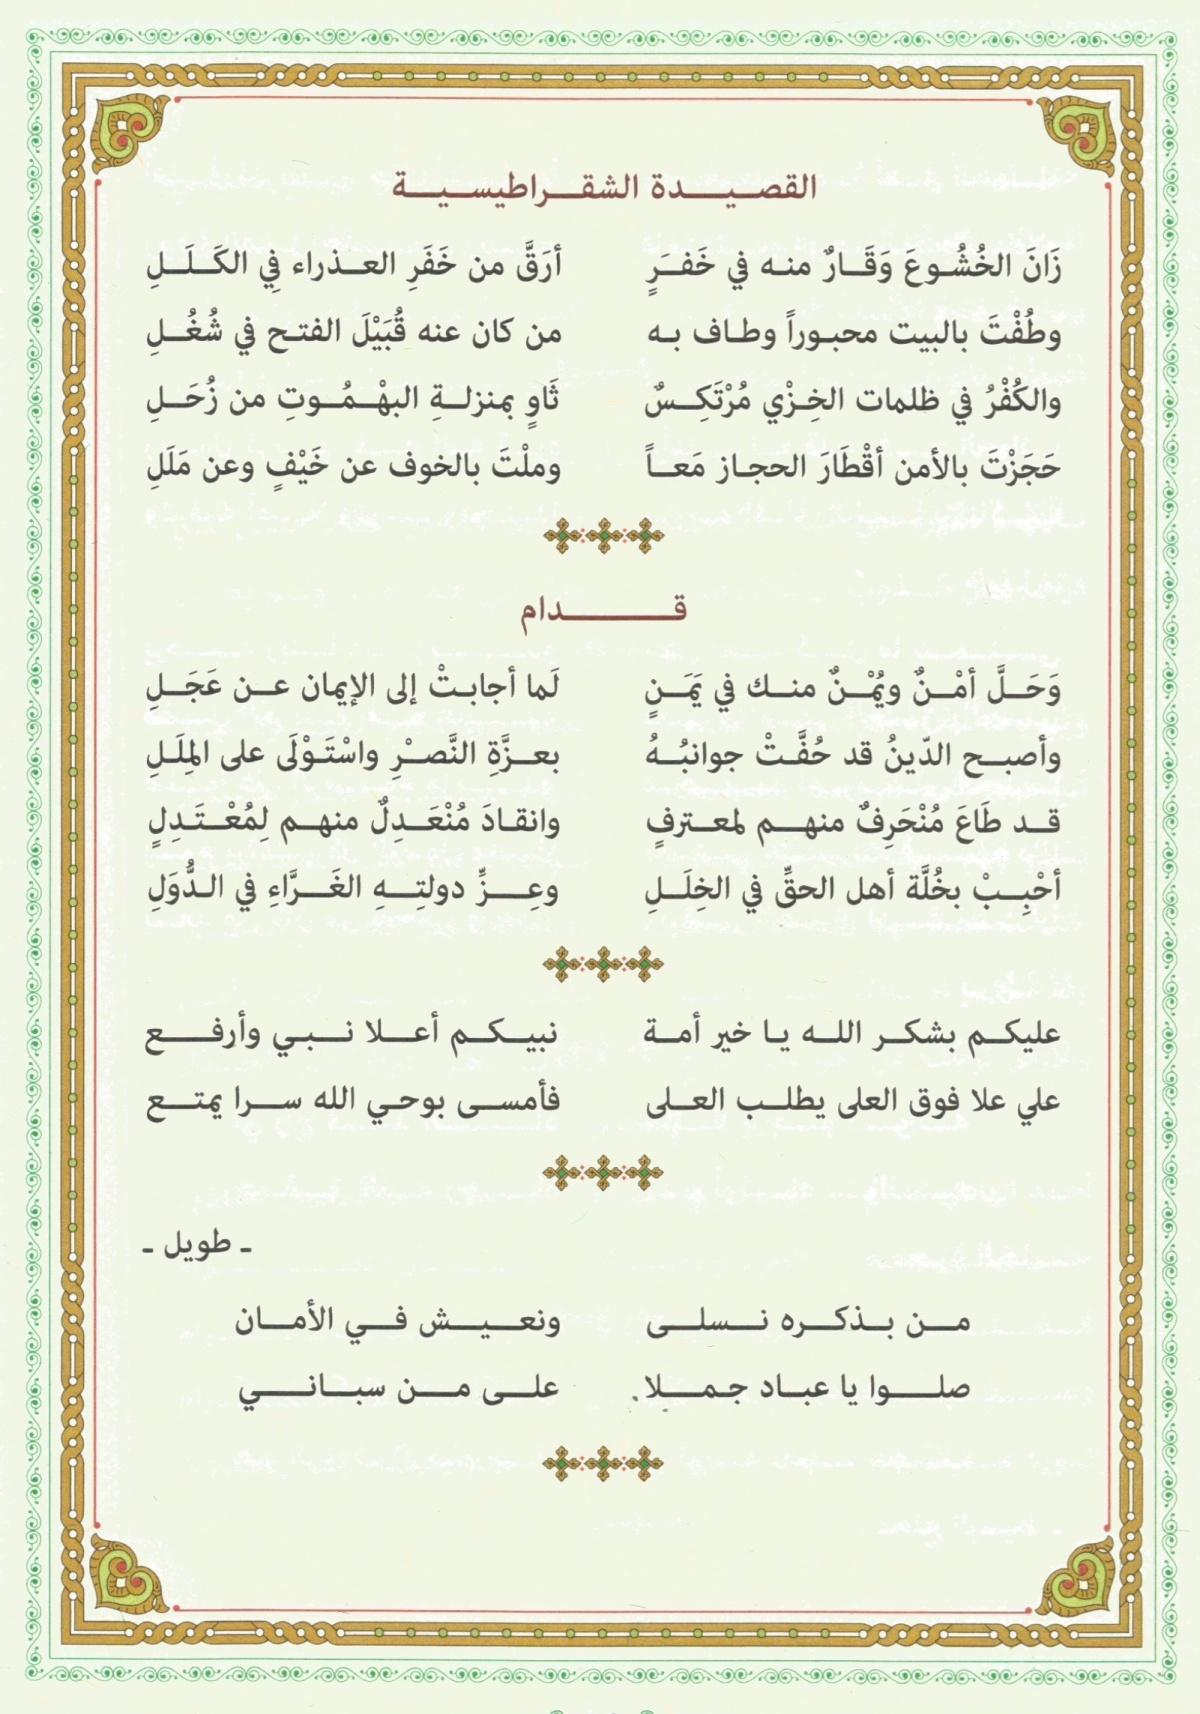 القصيدة الشقراطيسية
زَانَ الخُشُوعَ وَقَارٌ منه في خَفرَ ٍ أرَقَّ من خَفَرِ العذراء فِي الكَلَلِ
وطُفْتَ بالبيت محبوراً وطاف به من كان عنه قُبَيْلَ الفتح في شُغُلِ
والكُفْرُ في ظلمات الخِزْيِ مُرْتَكِسٌ ثَاوٍ بمنزلةِ البهْمُوتِ من زُحَلِ
حَجَزْتَ بالأمن أقْطَارَ الحجاز مَعاً وملْتَ بالخوف عن خَيْفٍ وعن مَلَلِ
قدام
وَحَلَّ أمْنٌ ويُمْنٌ منك في يَمَنٍ لَما أجابتْ إلى الإيمان عن عَجَلِ
وأصبح الدّينُ قد حُفَّتْ جوانبُهُ بعزَّةِ النَّصرْ واسْتَوْلَى على المِلَلِ
قد طَاعَ مُنْحَرِفٌ منهم لمعترفٍ وانقادَ مُنْعَدِلٌ منهم لِمُعْتَدِلٍ
أحْبِبْ بخُلَّة أهل الحقِّ في الخِلَلِ وعِزِّ دولتِهِ الغَرَّاءِ في الدُّوَلِ
عليكم بشكر الله يا خير أمة نبيكم أعلا نبي وأرفع
علي علا فوق العلى يطلب العلى فأمسى بوحي الله سرا يمتع
- طويل -
من بذكره نسلى ونعيش في الأمان
صلوا يا عباد جملا على من سباني